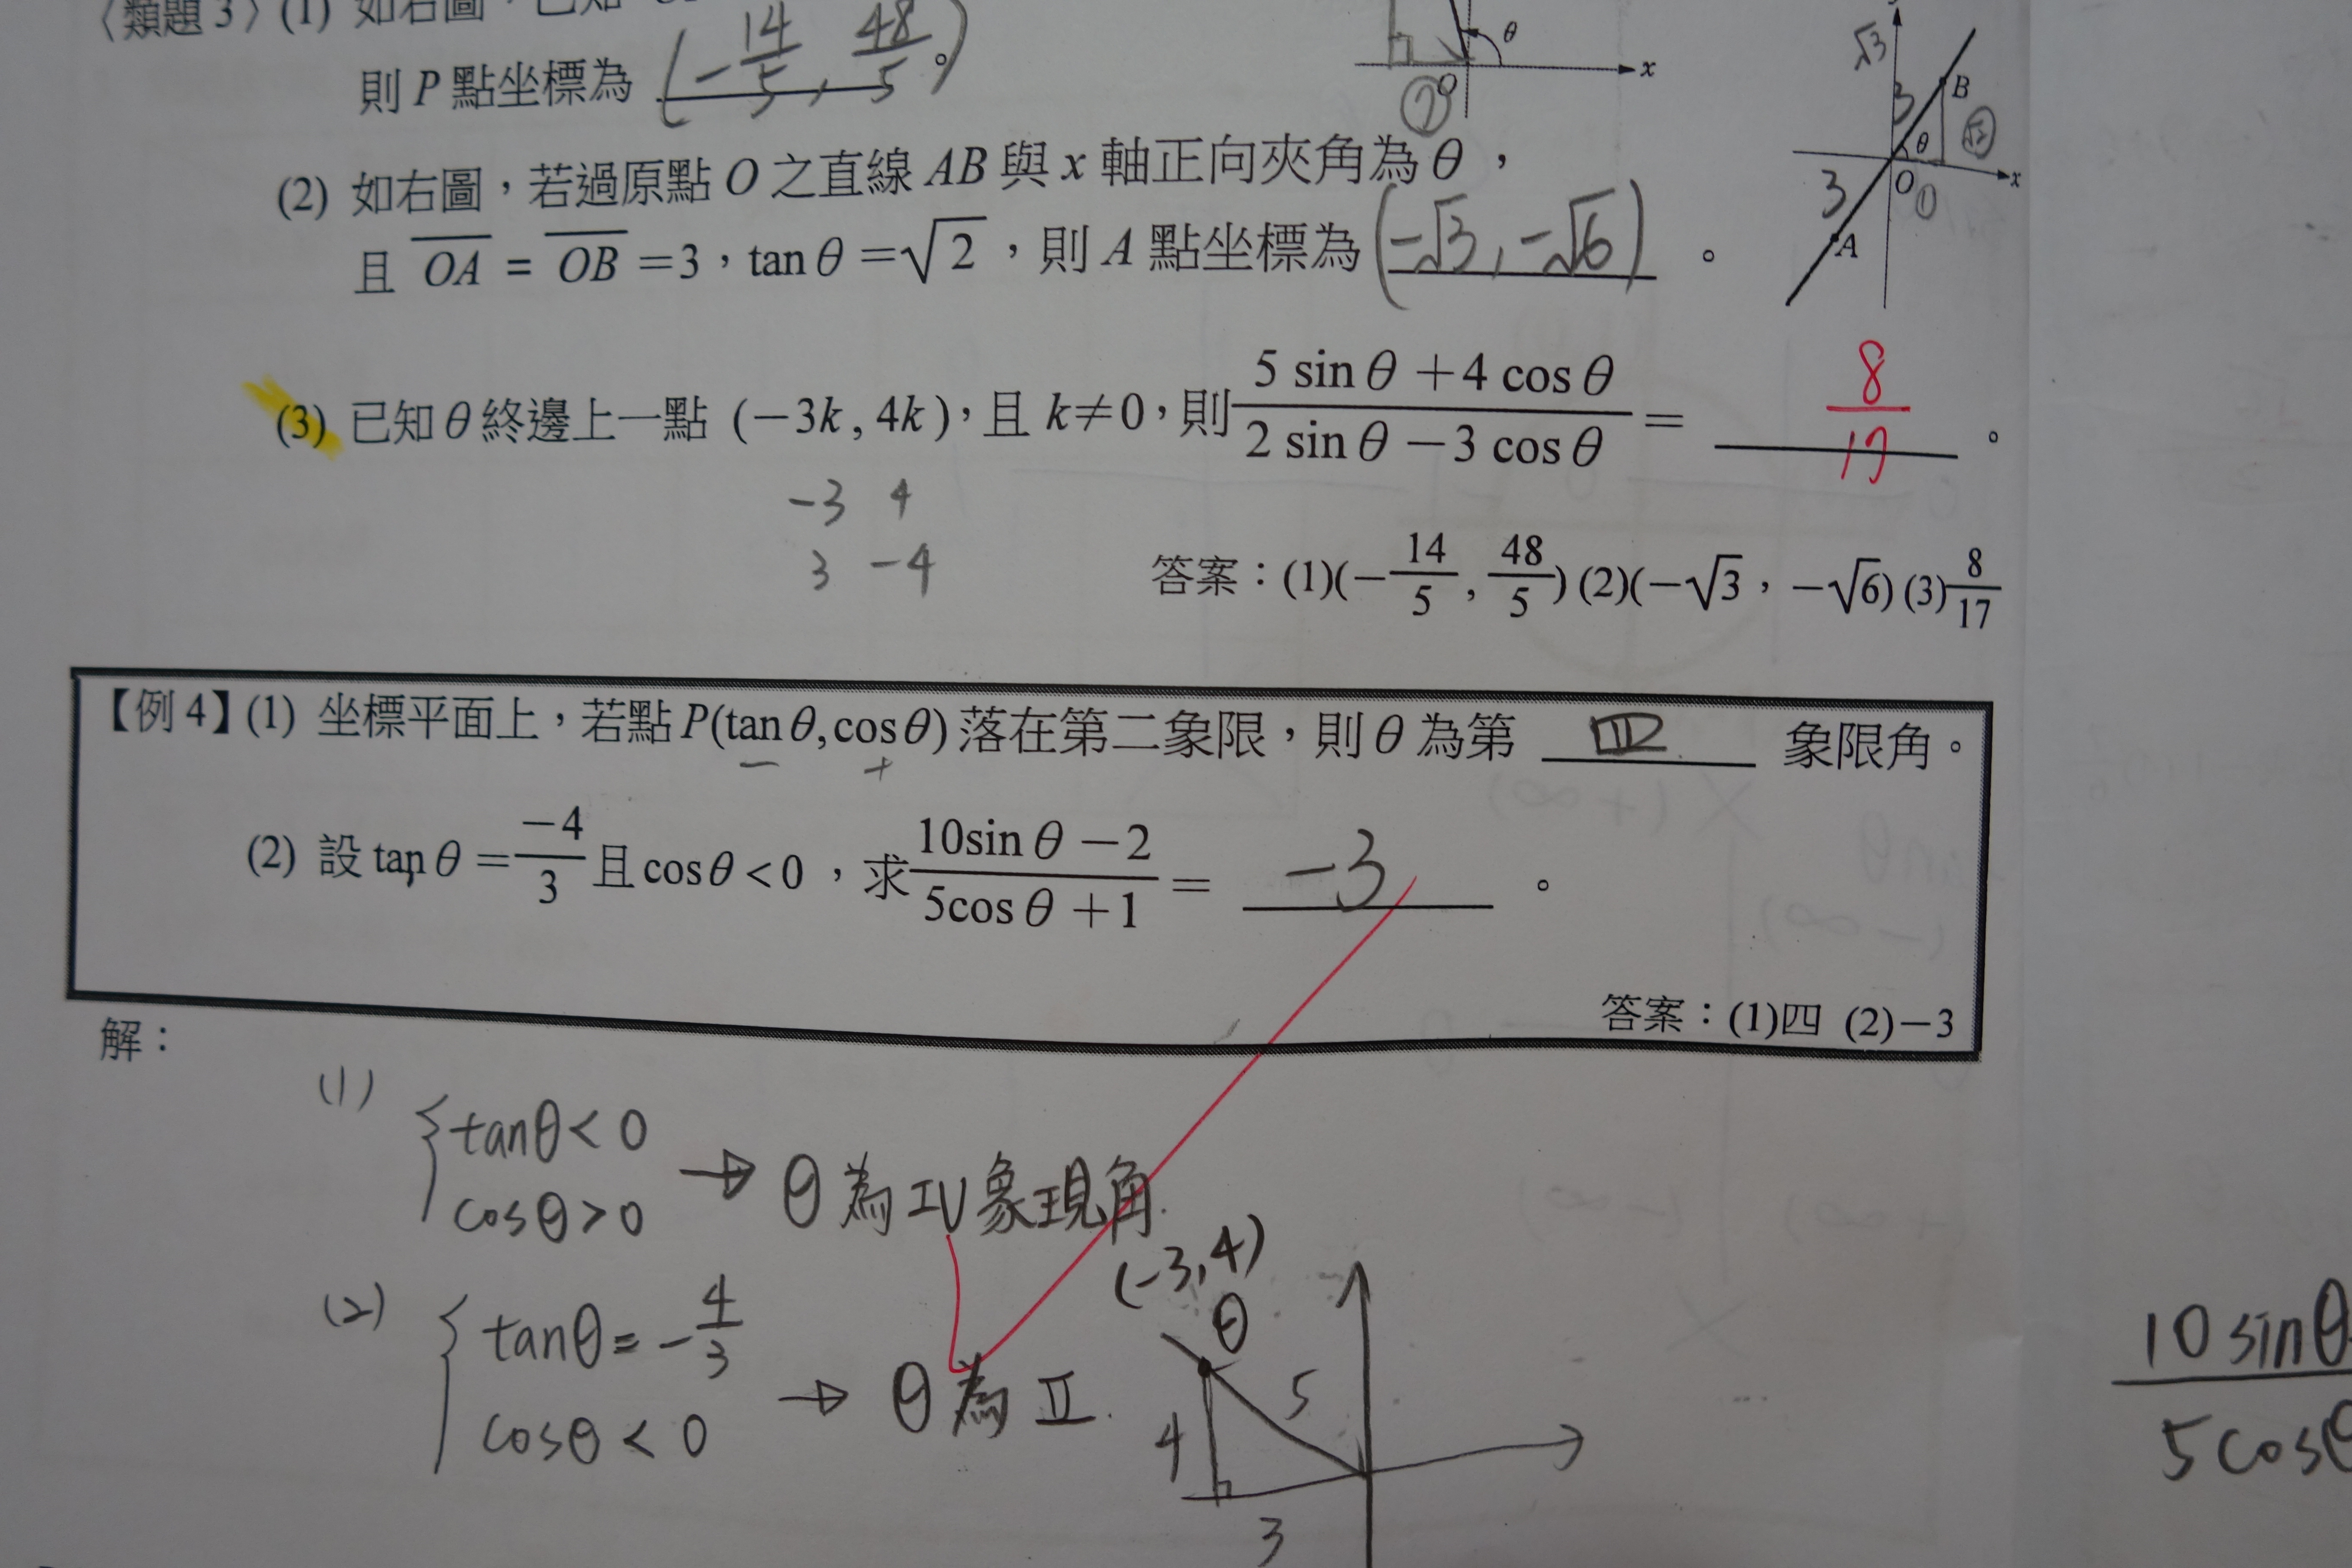 〈類題3〉(1) 如右圖,已知
則 P 點坐標為 (-14/5, 48/5)。
θ
x
O
⑦
(2) 如右圖,若過原點 O 之直線 AB 與 x 軸正向夾角為 θ,
且 OA = OB = 3,tan θ = √2,則 A 點坐標為 (-√3, -√6) 。
√3
3
B
√2
θ
O
①
x
3
A
(3) 已知 θ 終邊上一點 (-3k, 4k),且 k≠0,則 (5 sin θ + 4 cos θ)/(2 sin θ - 3 cos θ) = 8/17 。
-3 4
3 -4
答案:(1)(-14/5, 48/5) (2)(-√3, -√6) (3) 8/17
【例4】(1) 坐標平面上,若點 P(tan θ, cos θ) 落在第二象限,則 θ 為第 四 象限角。
- +
(2) 設 tan θ = -4/3 且 cos θ < 0,求 (10sin θ - 2)/(5cos θ + 1) = -3 。
答案:(1)四 (2)-3
解:
(1) { tanθ < 0
cosθ > 0 → θ 為 IV 象現角.
(2) { tanθ = -4/3
cosθ < 0 → θ 為 II.
(-3, 4)
θ
5
4
3
10 sinθ
5 cosθ